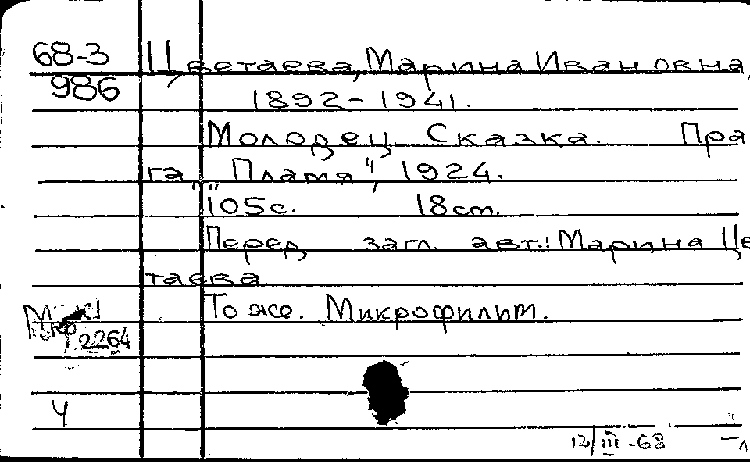 68-3 Цветаева, Марина Ивановна,
986 1892-1941.
Молодец. Сказка. Пра
га, "Пламя", 1924.
105с. 18см.
Перед загл. авт.: Марина Цве
таева
То же. Микрофильм.
2264
Ч
III-68